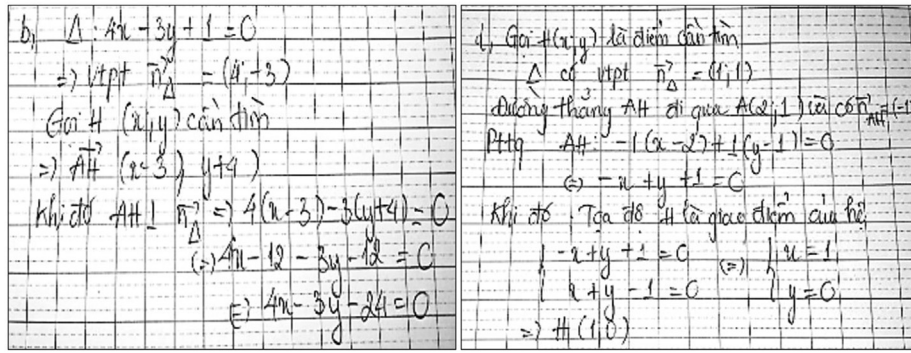 b, Δ: 4x - 3y + 1 = 0
=) vtpt n⃗Δ = (4; -3)
Gọi H (x; y) cần tìm
=) AH⃗ (x - 3; y + 4)
Khi đó AH ⊥ n⃗Δ =) 4(x - 3) - 3(y + 4) = 0
(=) 4x - 12 - 3y - 12 = 0
=) 4x - 3y - 24 = 0
d, Gọi H(x; y) là điểm cần tìm
Δ có vtpt n⃗Δ = (1; 1)
Đường thẳng AH đi qua A(2; 1) và có n⃗AH = (-1
Pttq AH: -1(x - 2) + 1(y - 1) = 0
(=) -x + y + 1 = 0
Khi đó Tọa độ H là giao điểm của hệ
{ -x + y + 1 = 0 (=) { x = 1
{ x + y - 1 = 0 { y = 0
=) H (1; 0)